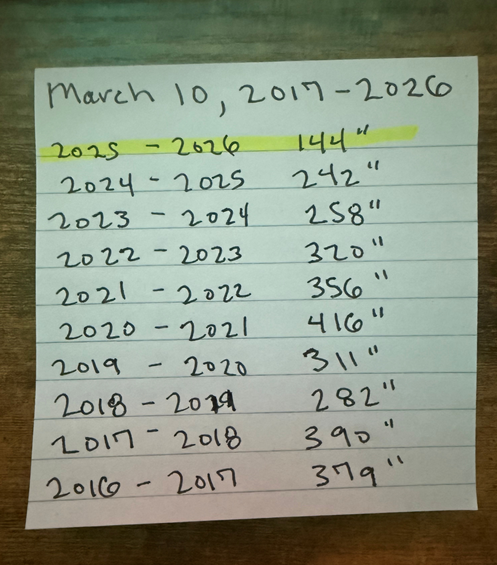 March 10, 2017 - 2026
2025 - 2026 144"
2024 - 2025 242"
2023 - 2024 258"
2022 - 2023 320"
2021 - 2022 356"
2020 - 2021 416"
2019 - 2020 311"
2018 - 2019 282"
2017 - 2018 390"
2016 - 2017 379"